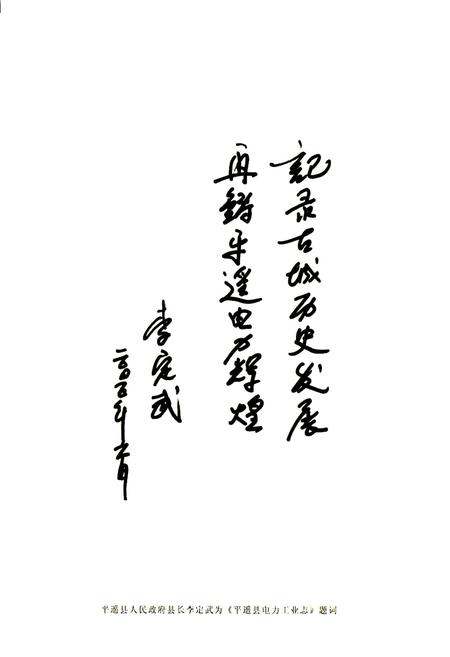 記录古城历史发展
再鑄平遥电力辉煌
李定武
二〇〇〇年六月
平遥县人民政府县长李定武为《平遥县电力工业志》题词